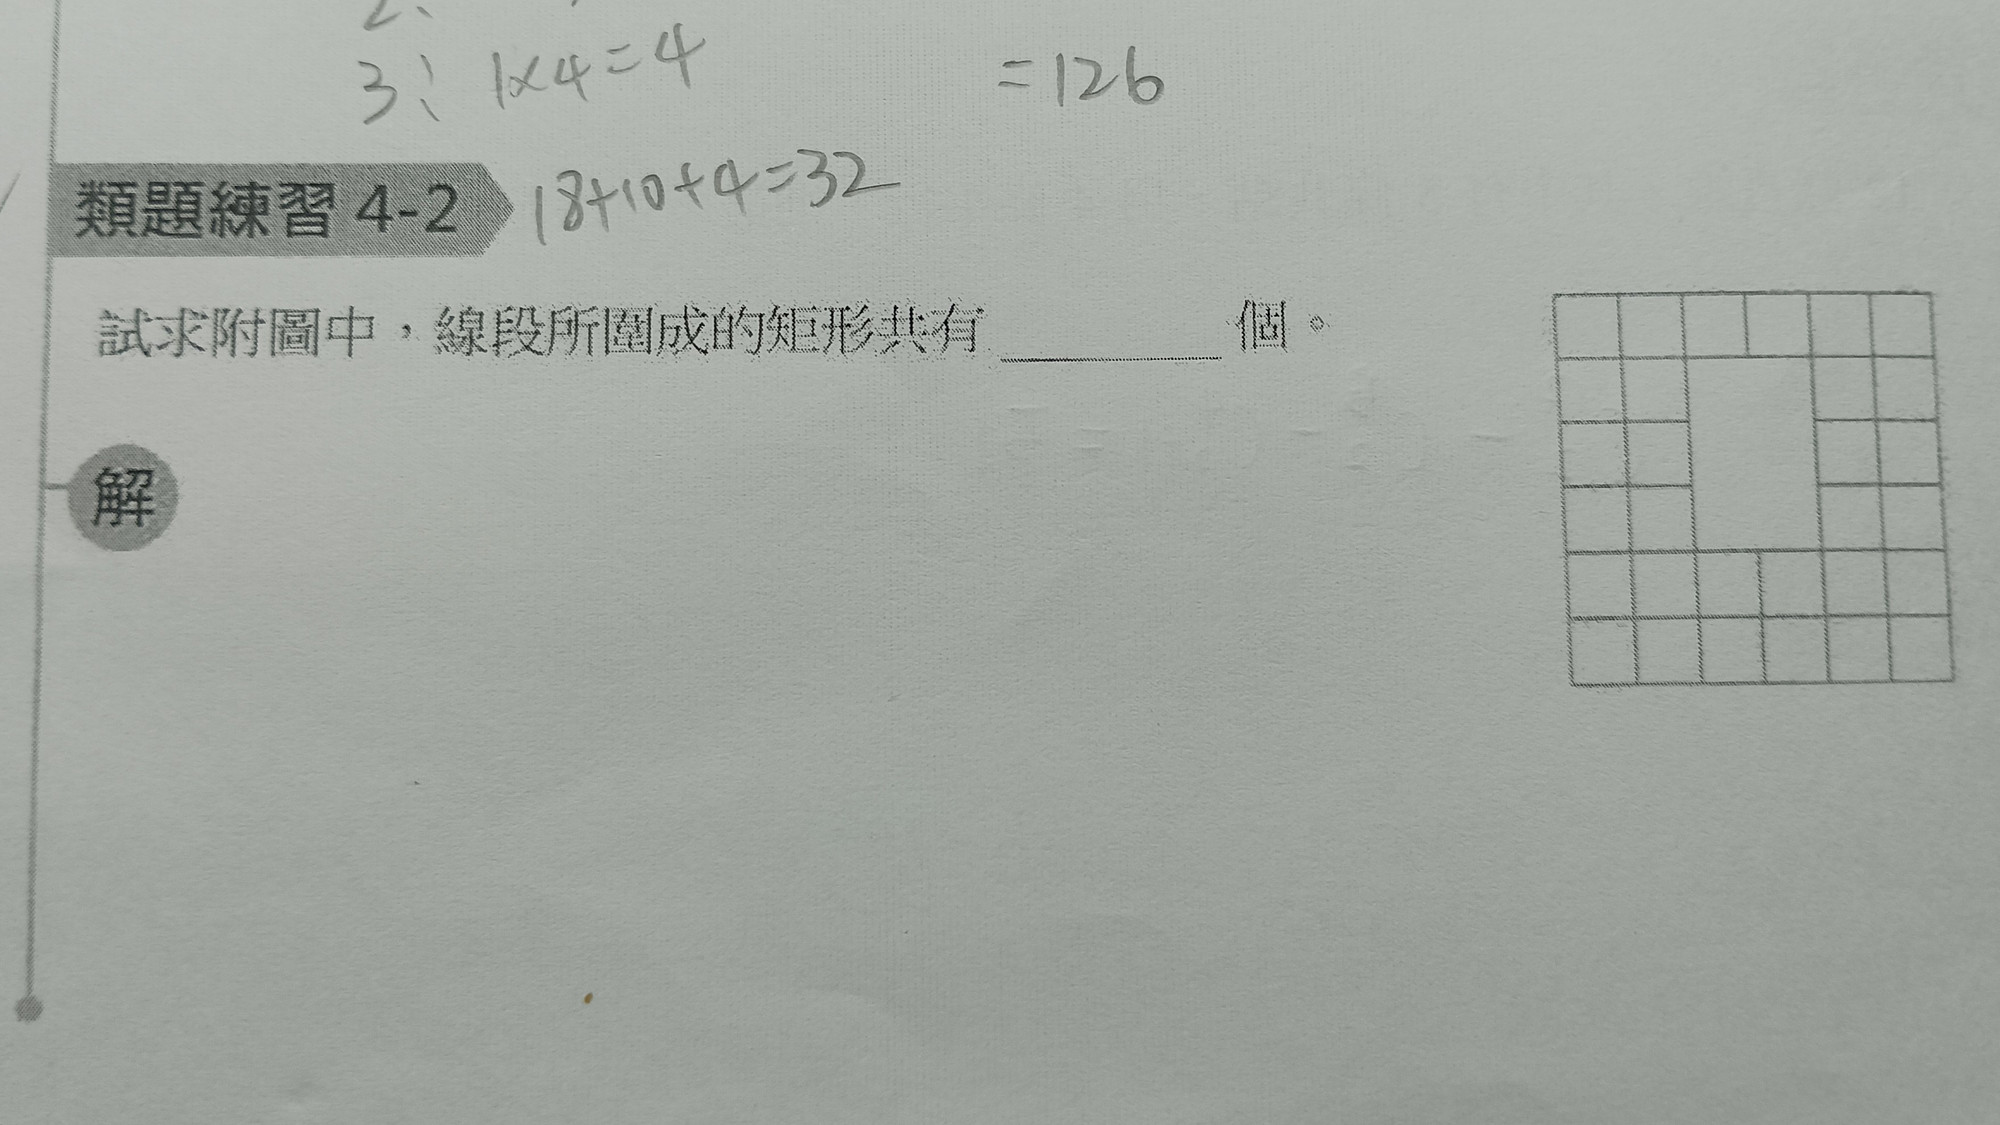 2、
3： 1×4=4
=126
類題練習 4-2
18+10+4=32
試求附圖中，線段所圍成的矩形共有________個。
解